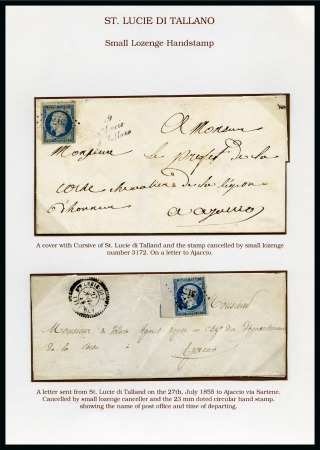 ST. LUCIE DI TALLANO
Small Lozenge Handstamp
19
Lucie
A Monsieur
Monsieur le prefet de la
corse chevalier de la légion
d'honneur
a ajaccio
A cover with Cursive of St. Lucie di Talland and the stamp cancelled by small lozenge
number 3172. On a letter to Ajaccio.
Monsieur
Monsieur de
de la Corse à Ajaccio
A letter sent from St. Lucie di Talland on the 27th. July 1855 to Ajaccio via Sartene.
Cancelled by small lozenge canceller and the 23 mm doted circular hand stamp.
showing the name of post office and time of departing.